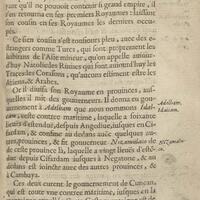 par qu'il ne pouuoit contenir si grand empire, il
s'en retourna en ses premiers Royaumes: laissant
son cousin en ses Royaumes les derniers occu-
pés.
Ce sien cousin s'est tousiours pleu, auec des e-
strangers comme Turcs, qui sont proprement les
habitans de l'Asie mineur, qu'on appelle auiour-
d'huy Natoliens: Rumes qui sont autant
Traces: les Corasons, qu'aucuns estiment estre les
Ariens, & Arabes.
Or il diuisa son Royaume en prouinces, aus-
quelles il mit des gouuerneurs. Il donna en gou-
uernement à Adelham que nous nommons Idal-
cam, veste contree maritime, laquelle a soixante
lieuës d'estenduë, depuis Angediue, iusques en Ci-
fardam, & confine au dedans auec quelques au-
tres prouinces, & fit gouuerneur Nizamoluco de
de ceste prouince là, laquelle a vingt lieuës d'esten-
due depuis Cifardam iusques à Negatone, & au
dedans confronte auec les autres prouinces, &
à Cambaya.
Ces deux eurent le gouuernement de Cuncam,
qui est toute vne contree maritime, iusques en la
Adelham,
Idalcam.